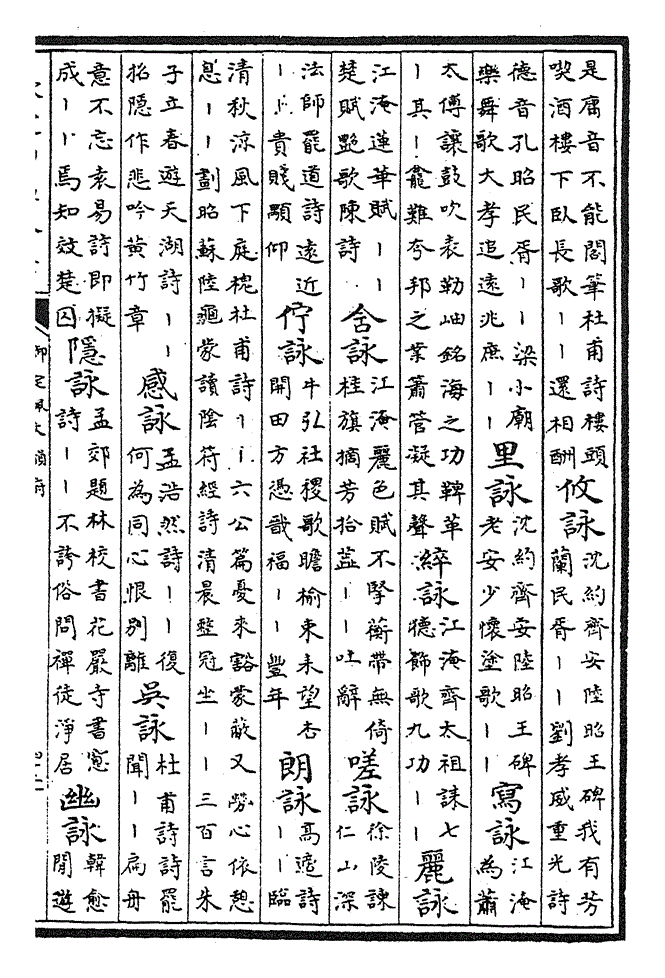 是庸音不能閣筆杜甫詩樓頭
喫酒樓下臥長歌丨丨還相酬
攸詠
沈約齊安陸昭王碑我有芳
蘭民胥丨丨劉孝威重光詩
德音孔昭民胥丨丨梁小廟
樂舞歌大孝追遠兆庶丨丨
里詠
沈約齊安陸昭王碑
老安少懷塗歌丨丨
寫詠
江淹
為蕭
太傅讓鼓吹表勒岫銘海之功鞞革
丨其丨龕難夸邦之業簫管凝其聲
綷詠
江淹齊太祖誄七
德飾歌九功丨丨
麗詠
江淹蓮華賦丨丨
楚賦艷歌陳詩
含詠
江淹麗色賦不掔蘅帶無倚
桂旗摘芳拾蕋丨丨吐辭
嗟詠
徐陵諫
仁山深
法師罷道詩遠近
丨丨貴賤顒仰
佇詠
牛弘社稷歌瞻榆束耒望杏
開田方憑戩福丨丨豐年
朗詠
高適詩
丨丨臨
清秋涼風下庭槐杜甫詩丨丨六公篇憂來豁蒙蔽又勞心依憩
息丨丨劃昭蘇陸龜蒙讀陰符經詩清晨整冠坐丨丨三百言朱
子立春遊天湖詩丨丨
招隱作悲吟黃竹章
感詠
孟浩然詩丨丨復
何為同心恨別離
吳詠
杜甫詩詩罷
聞丨丨扁舟
意不忘袁易詩即擬
成丨丨焉知效楚囚
隱詠
孟郊題林校書花嚴寺書窻
詩丨丨不誇俗問禪徒淨居
幽詠
韓愈
閒遊
御定佩文韻府